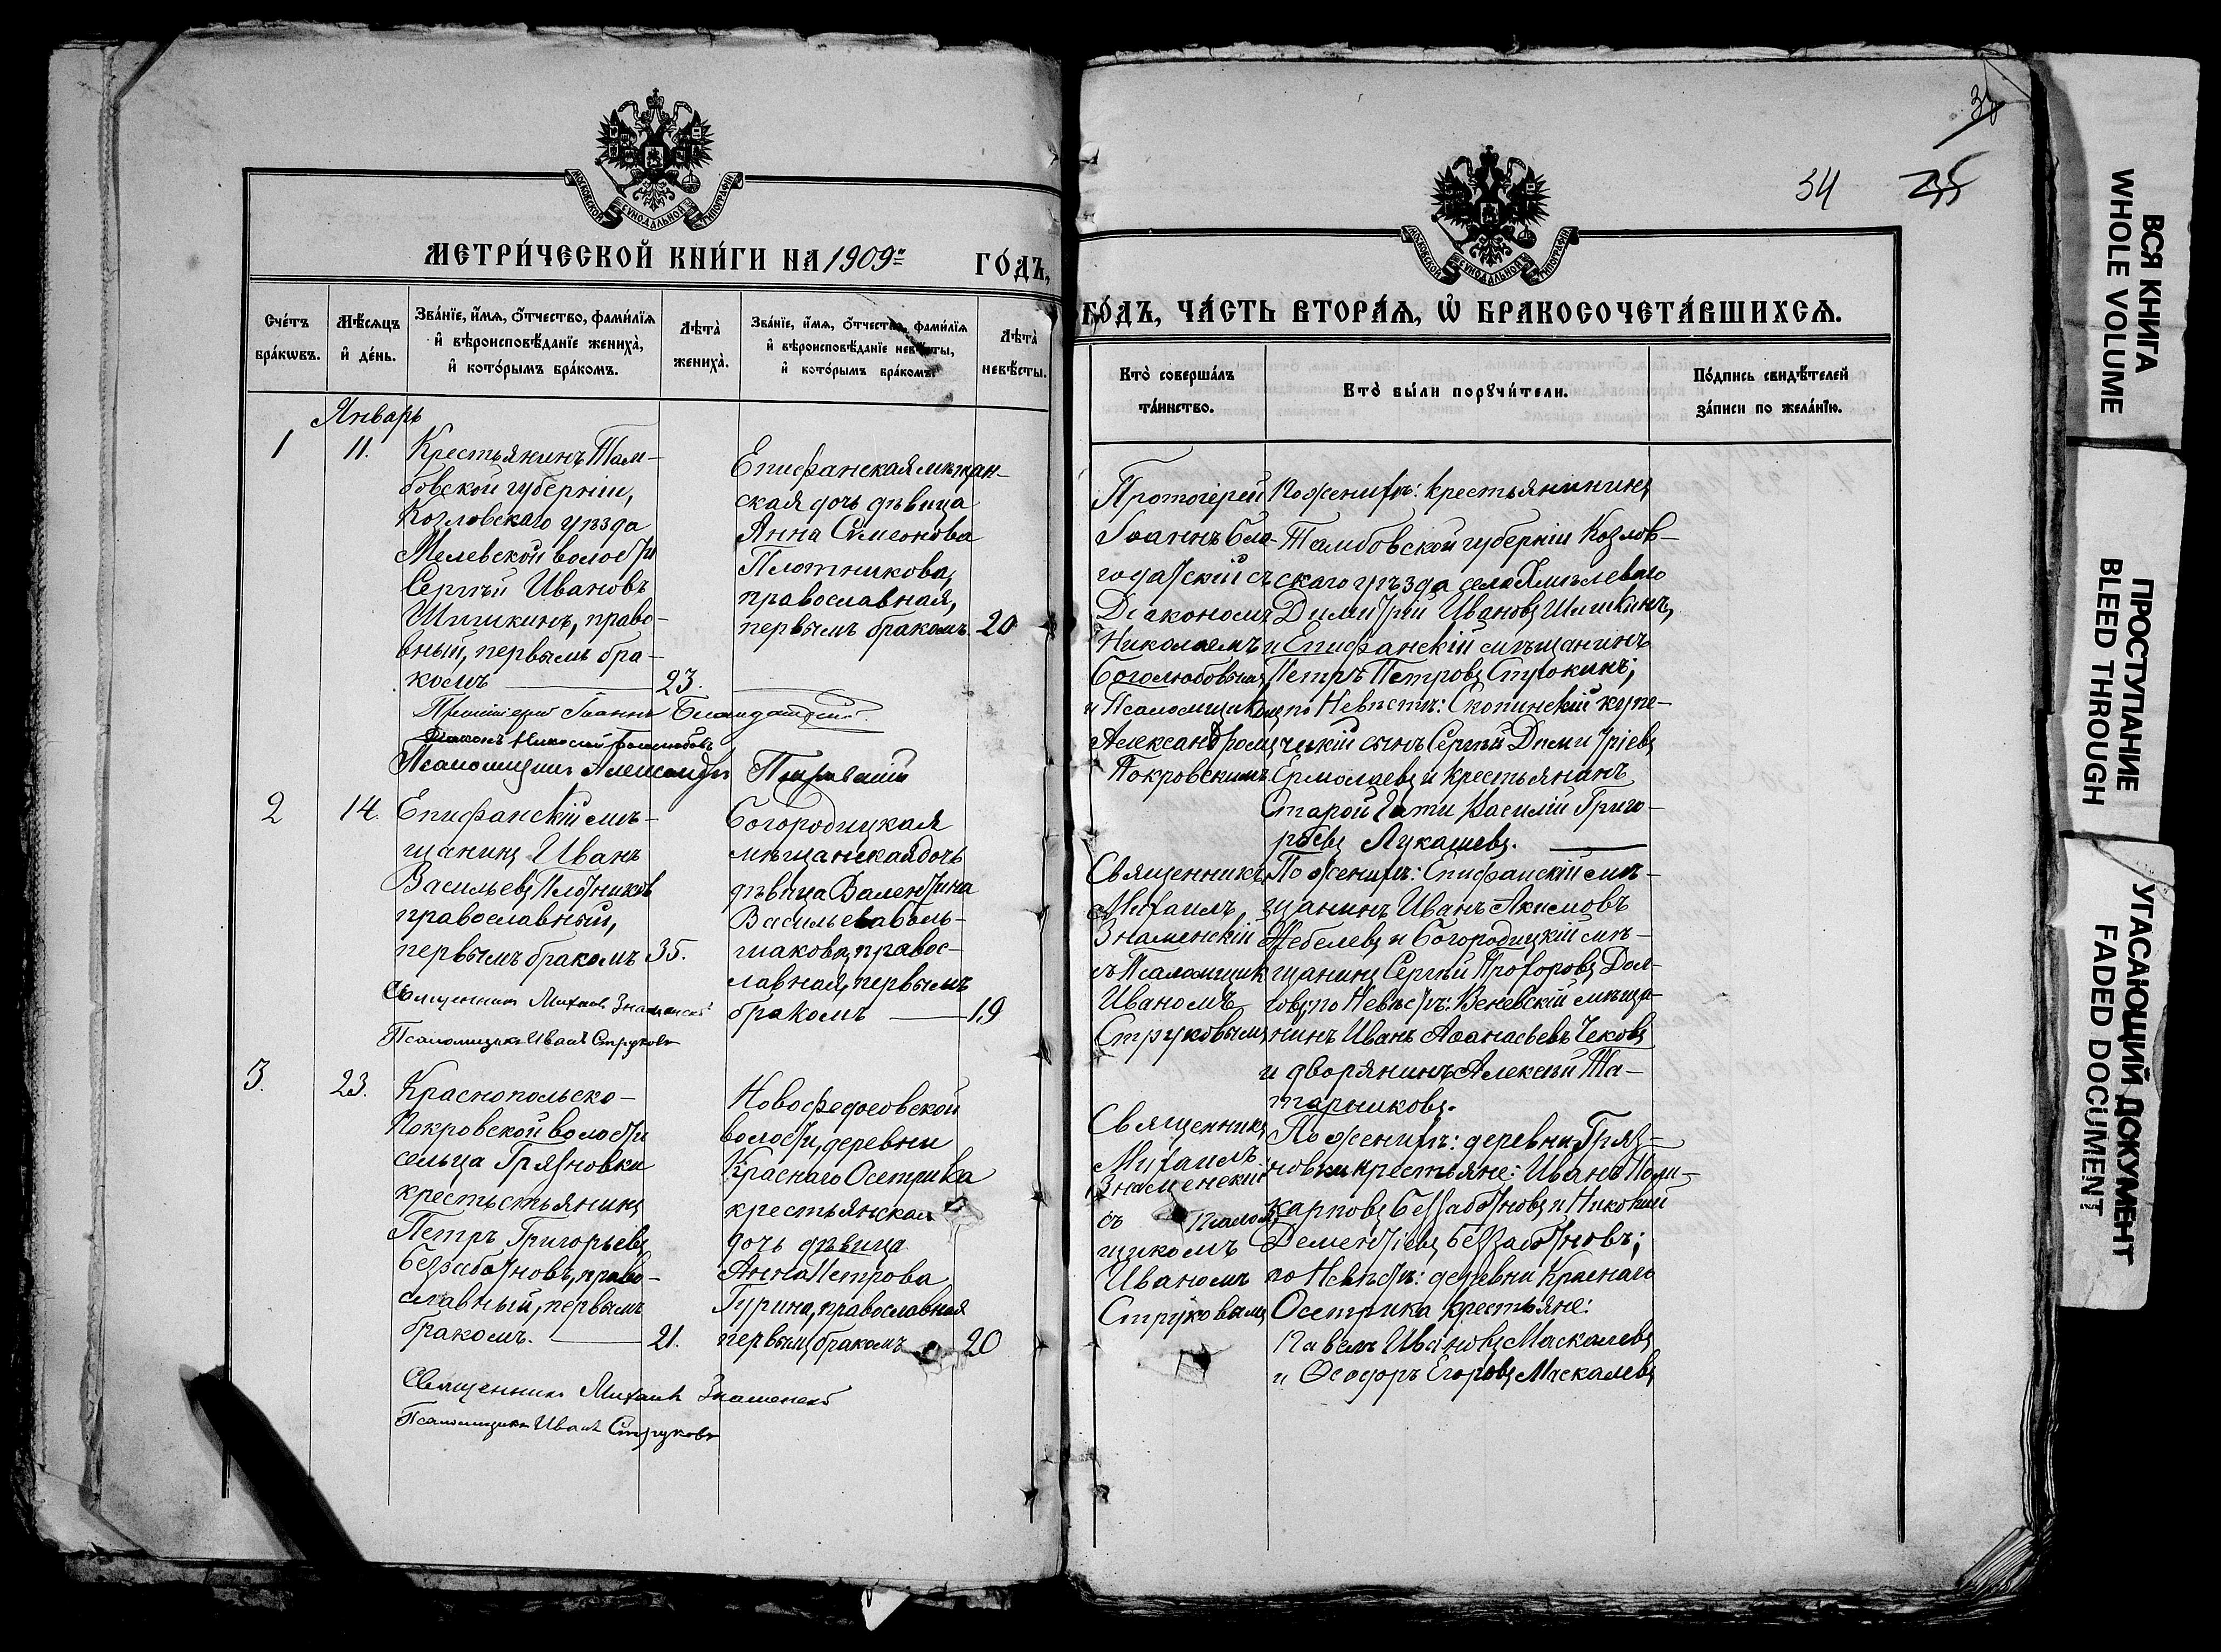 МОСКОВСКОЙ СУНОДАЛЬНОЙ ТИПОГРАФІИ
МЕТРИ́ЧЕСКОЙ КНИ́ГИ НА 1909й ГО́ДЪ,
Сче́тъ бра́кωвъ.
Мѣ́сяцъ и҆ де́нь.
Зва́нїе, и҆́мя, о҆́тчество, фами́лїя
и҆ вѣроисповѣ́данїе жениха̀,
и҆ кото́рымъ бра́комъ.
Лѣта̀ жениха̀.
Зва́нїе, и҆́мя, о҆́тчество, фами́лїя
и҆ вѣроисповѣ́данїе невѣ́сты,
и҆ кото́рымъ бра́комъ.
Лѣта̀ невѣ́сты.
Январь
1
11.
Крестьянинъ Там-
бовской губерніи,
Козловскаго уѣзда
волости
Сергѣй Ивановъ
Шишкинъ, право-
вный, первымъ бра-
комъ — 23.
Епифанская мѣщан-
ская дочь дѣвица
Анна Симеонова
Плотникова,
православная,
первымъ бракомъ 20
Протоіерей Іоаннъ
Діаконъ Николай Боголюбовъ
Псаломщикъ Александръ Покровскій
2
14.
Епифанскій мѣ-
щанинъ Иванъ
Васильевъ Плотниковъ
православный,
первымъ бракомъ 35.
Богородицкая
мѣщанская дочь
дѣвица Валентина
Васильева Боль-
шакова, правос-
лавная, первымъ
бракомъ — 19
Священникъ Михаилъ Знаменскій
Псаломщикъ Иванъ Струковъ
3.
23.
Краснопольско-
Покровской волости
сельца Грязновки
крестьстьянинъ
Петръ Григорьевъ
Беззаботновъ, право-
славный, первымъ
бракомъ. — 21.
Новофедосовской
волости, деревни
Краснаго Осетрика
крестьянская
дочь дѣвица
Анна Петрова
Гурина, православная
первымъ бракомъ 20
Священникъ Михаилъ Знаменскій
Псаломщикъ Иванъ Струковъ
34
МОСКОВСКОЙ СУНОДАЛЬНОЙ ТИПОГРАФІИ
ГО́ДЪ, ЧА́СТЬ ВТОРА́Ѧ, Ѽ БРАКОСОЧЕТА́ВШИХСѦ.
Кто̀ соверша́лъ
та́инство.
Кто̀ бы́ли порꙋчи́тели.
По́дпись свидѣ́телей
за́писи по жела́нїю.
Протоіерей
Іоаннъ Бла-
годатскій съ
Діакономъ
Николаемъ
Боголюбовымъ
и Псаломщикомъ
Александромъ
Покровскимъ
По женихѣ: крестьянинъ
Тамбовской губерніи Козлов-
скаго уѣзда села
Димитрій Ивановъ Шишкинъ,
и Епифанскій мѣщанинъ
Петръ Петровъ Строкинъ;
по Невѣстѣ: Скопинскій купе-
ческій сынъ Сергѣй Димитріевъ
Ермолаевъ и крестьянинъ
Старой Гати Василій Григо-
рьевъ Лукашевъ.
Священникъ
Михаилъ
Знаменскій
съ Псаломщик
Иваномъ
Струковымъ
По женихѣ: Епифанскій мѣ-
щанинъ Иванъ Акимовъ
Жебелевъ и Богородицкій мѣ-
щанинъ Сергѣй Прохоровъ Дол-
говъ; по Невѣстѣ: Веневскій мѣща-
нинъ Иванъ Аѳанасьевъ Чековъ
и дворянинъ Алексѣй Та-
тариковъ.
Священникъ
Михаилъ
Знаменскій
съ Псалом-
щикомъ
Иваномъ
Струковымъ
По женихѣ: деревни Гряз-
новки крестьяне: Иванъ Поли-
карповъ Беззаботновъ и Николай
Дементіевъ Беззаботновъ;
по Невѣстѣ: деревни Краснаго
Осетрика крестьяне:
Павелъ Ивановъ Маскалевъ
и Ѳеодоръ Егоровъ Маскалевъ
ВСЯ КНИГА
WHOLE VOLUME
ПРОСТУПАНИЕ
BLEED THROUGH
УГАСАЮЩИЙ ДОКУМЕНТ
FADED DOCUMENT